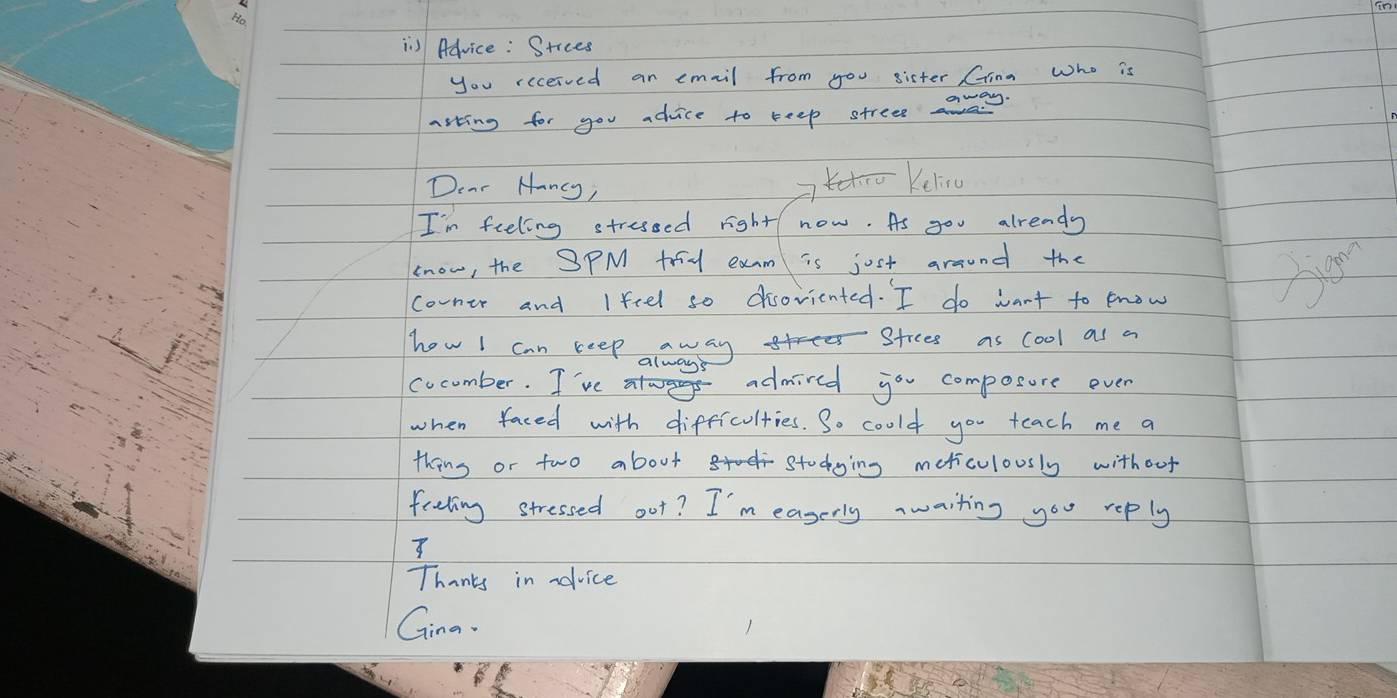 Ho
in
ii) Advice: Strees
you received an email from you sister Gina who is
asking for you advice to keep strees awai away.
Dear Nancy,
Keliru Keliru
I'm feeling stressed right now. As you already
know, the SPM trial exam is just around the
corner and I feel so disoriented. I do want to know
how I can keep away strees Strees as cool as a
cucumber. I've always always admired you composure even
when faced with difficulties. So could you teach me a
thing or two about studi studying meticulously without
feeling stressed out? I'm eagerly awaiting you reply
Thanks in advice
Gina.
Sigma